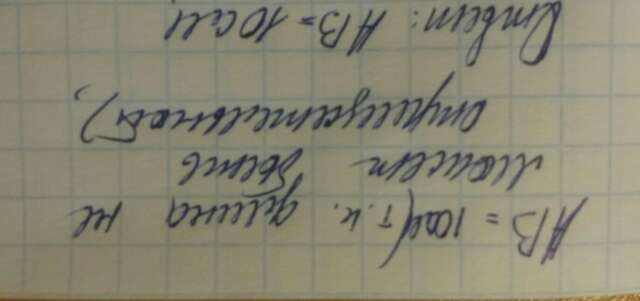 AB = 10см (т.к. длина не
может быть
отрицательной),
Ответ: AB = 10см